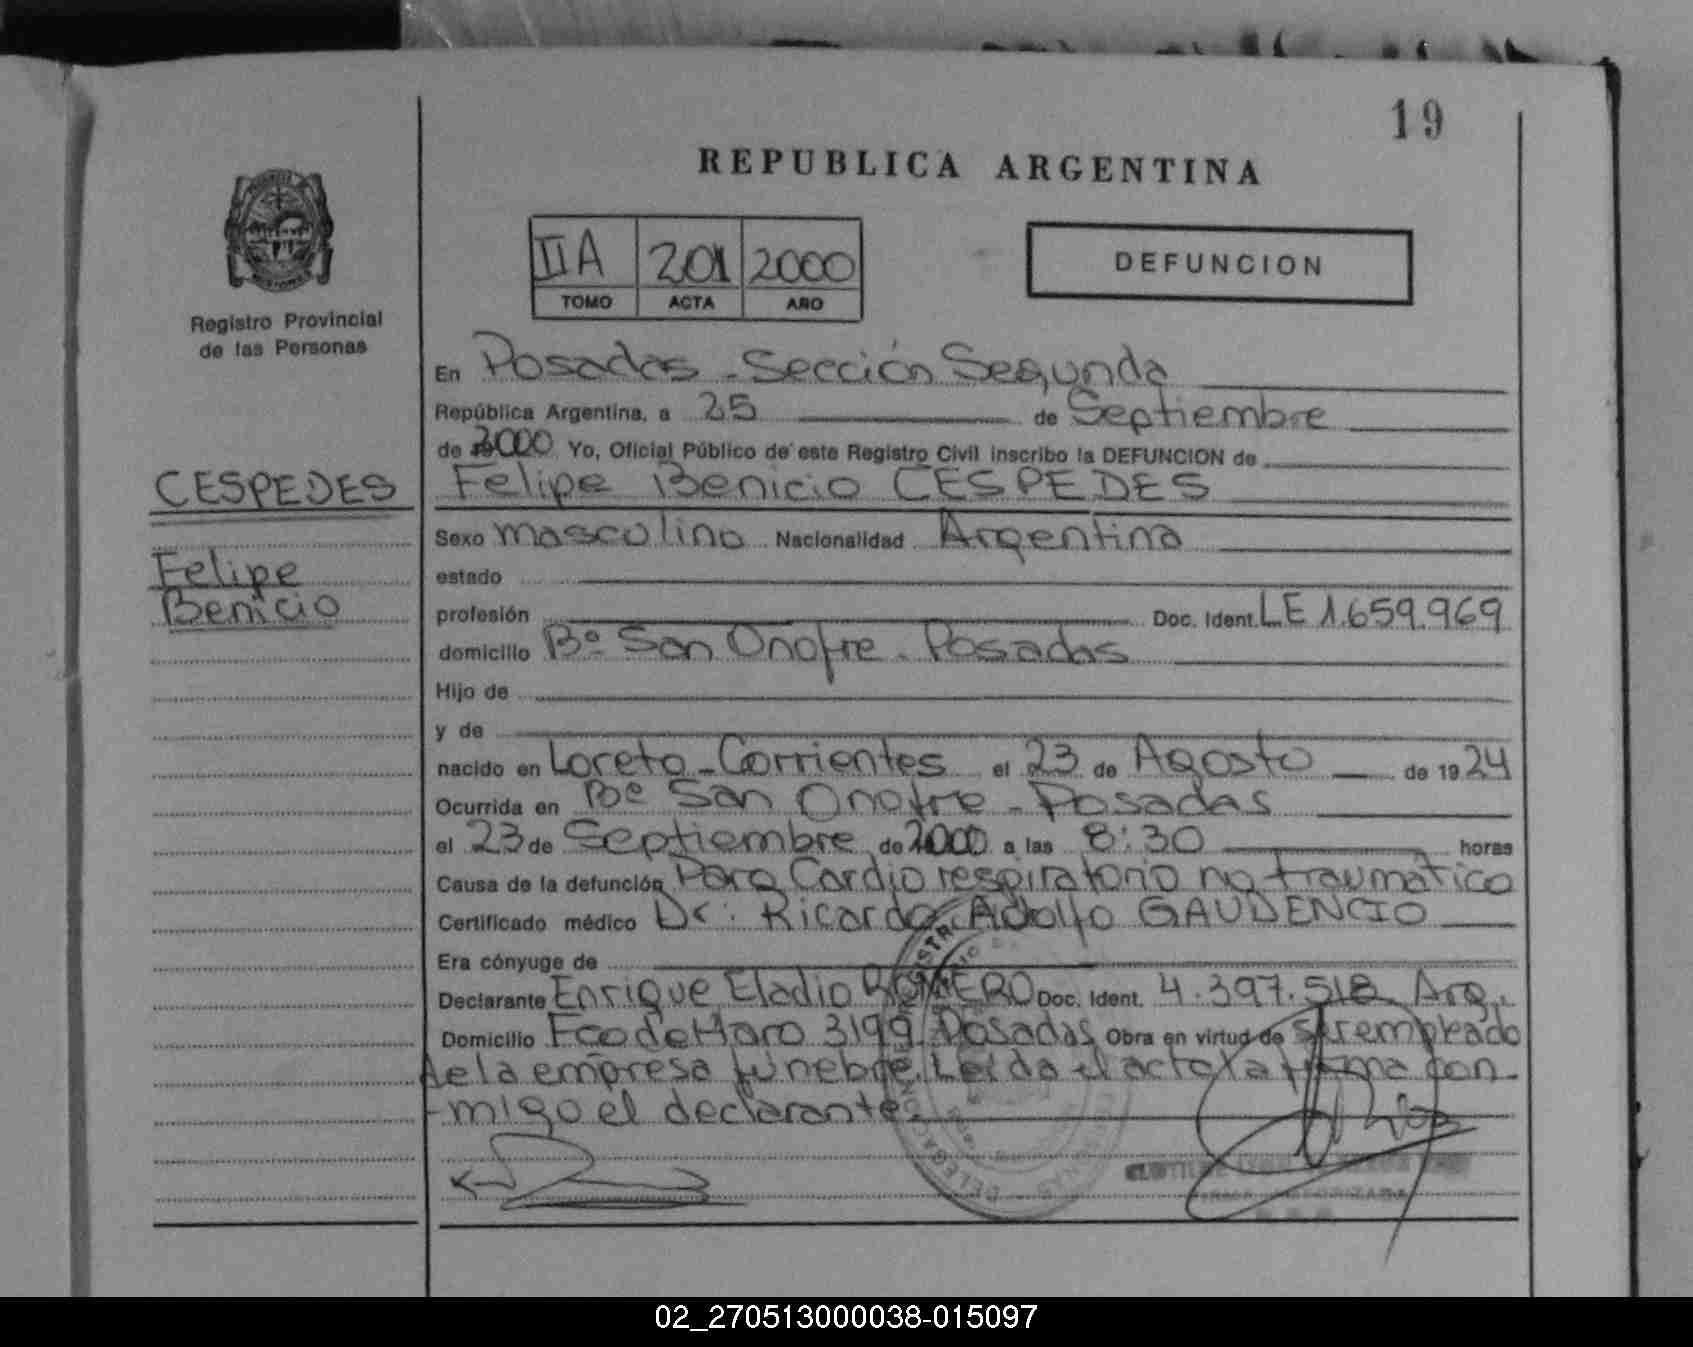 19
REPUBLICA ARGENTINA
IIA 201 2000
TOMO ACTA AÑO
DEFUNCION
Registro Provincial
de las Personas
En Posadas - Sección Segunda
República Argentina, a 25 de Septiembre
de 2000 Yo, Oficial Público de este Registro Civil inscribo la DEFUNCION de
CESPEDES
Felipe Benicio CESPEDES
Sexo masculino Nacionalidad Argentina
Felipe
estado
Benicio
profesión Doc. Ident. LE 1.659.969
domicilio Bº San Onofre - Posadas
Hijo de
y de
nacido en Loreto - Corrientes el 23 de Agosto de 1924
Ocurrida en Bº San Onofre - Posadas
el 23 de Septiembre de 2000 a las 8:30 horas
Causa de la defunción Paro Cardio respiratorio no traumático
Certificado médico Dr: Ricardo Adolfo GAUDENCIO
Era cónyuge de
Declarante Enrique Eladio ROMERO Doc. Ident. 4.397.518 Arg.
Domicilio Fco de Haro 3199 Posadas Obra en virtud de ser empleado
de la empresa fúnebre. Leída el acta la firma con-
-migo el declarante.
02_270513000038-015097